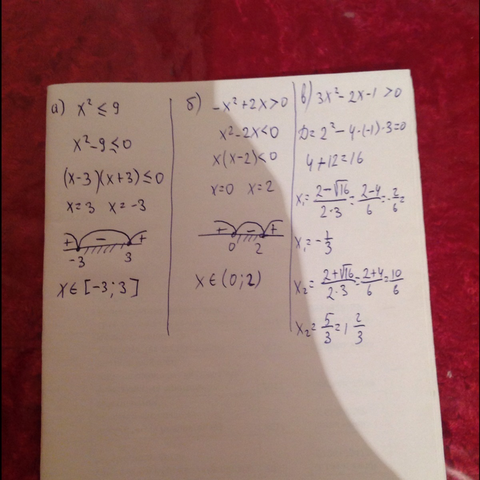 а) x² ≤ 9
x² - 9 ≤ 0
(x-3)(x+3) ≤ 0
x = 3 x = -3
+ - +
-3 3
x ∈ [-3; 3]
б) -x² + 2x > 0
x² - 2x < 0
x(x-2) < 0
x = 0 x = 2
+ - +
0 2
x ∈ (0; 2)
в) 3x² - 2x - 1 > 0
D = 2² - 4·(-1)·3 = 0
4 + 12 = 16
x₁ = (2-√16)/(2·3) = (2-4)/6 = -2/6 =
x₁ = -1/3
x₂ = (2+√16)/(2·3) = (2+4)/6 = 10/6
x₂ = 5/3 = 1 2/3